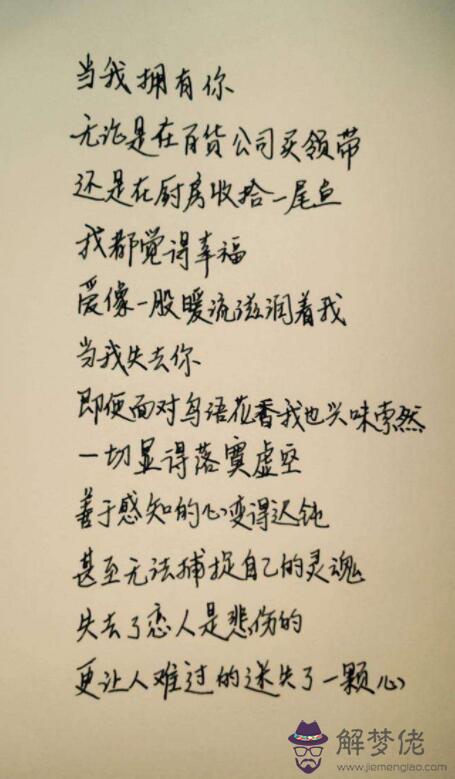 当我拥有你
无论是在百货公司买领带
还是在厨房收拾一尾鱼
我都觉得幸福
爱像一股暖流滋润着我
当我失去你
即便面对鸟语花香我也兴味索然
一切显得落寞虚空
善于感知的心变得迟钝
甚至无法捕捉自己的灵魂
失去了恋人是悲伤的
更让人难过的迷失了一颗心
解梦佬
www.jiemenglao.com